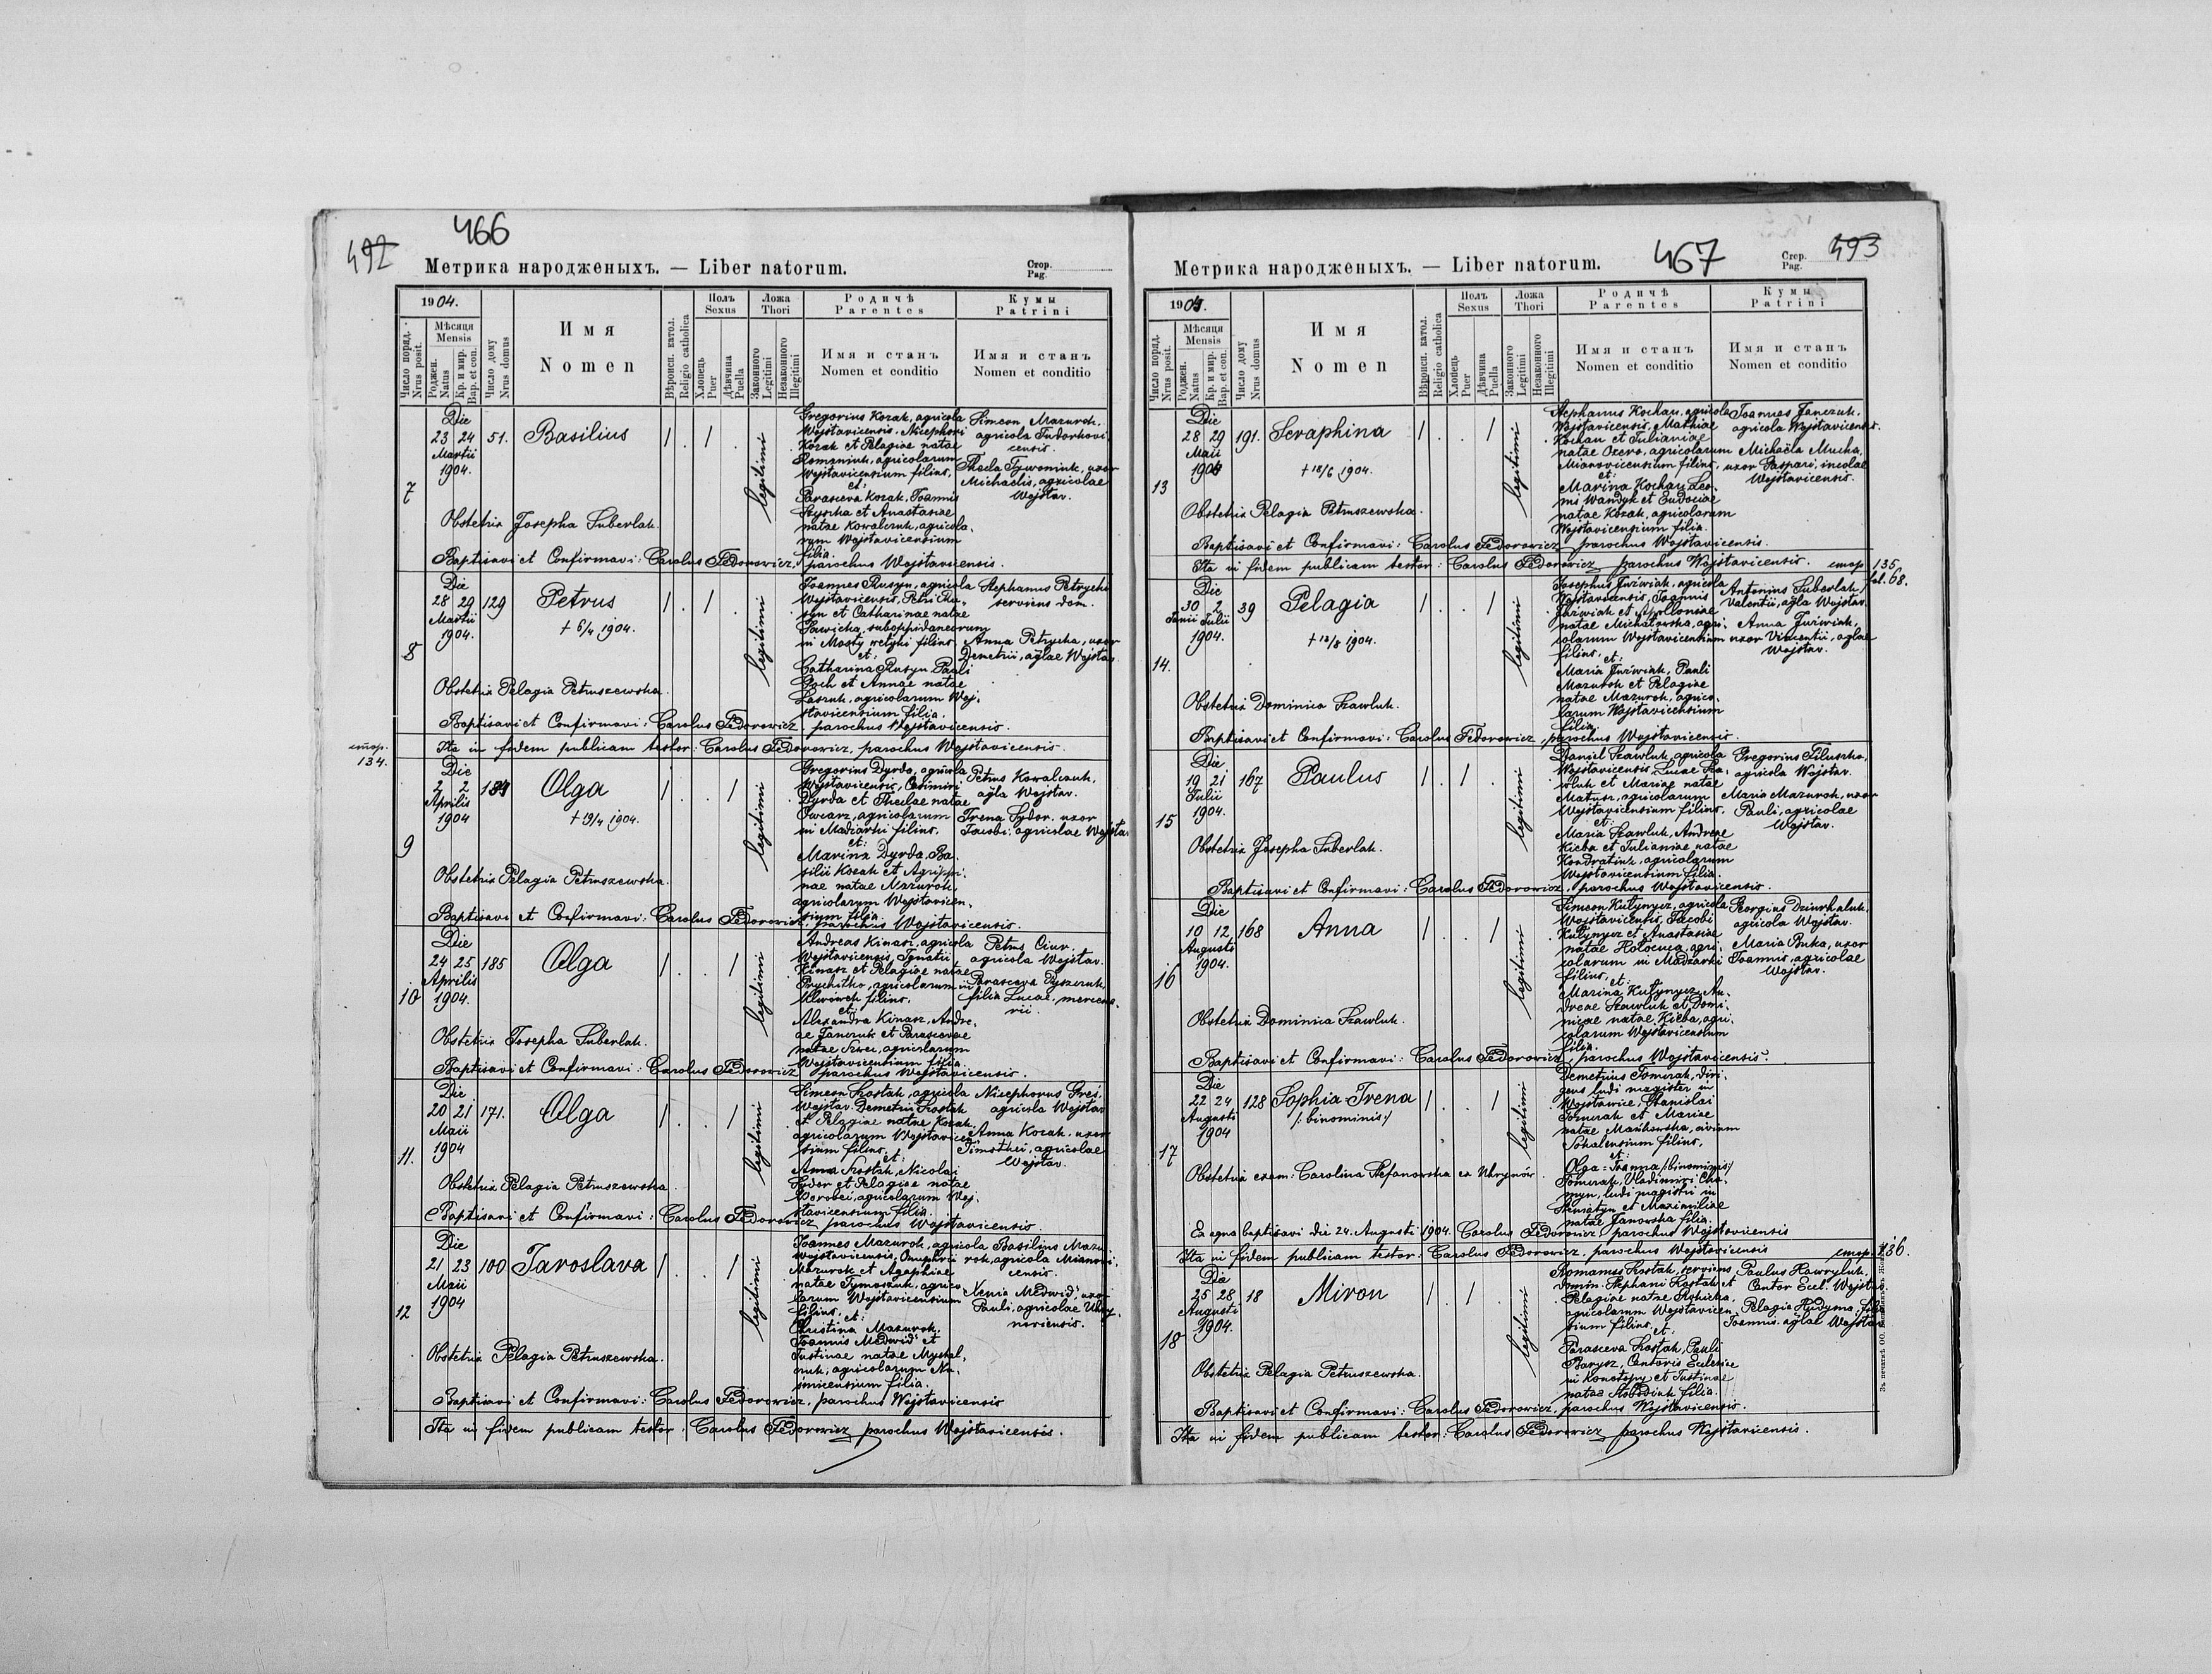 492
466
Метрика народженыхъ. — Liber natorum.
Стор.
Pag.
1904.
Число поряд.
Nrus posit.
Мѣсяця
Mensis
Роджен.
Natus
Кр. и мир.
Bap. et con.
Число дому
Nrus domus
Имя
Nomen
Вѣроисп. катол.
Religio catholica
Полъ
Sexus
Хлопець
Puer
Дѣвчина
Puella
Ложа
Thori
Законного
Legitimi
Незаконного
Illegitimi
Родичѣ
Parentes
Имя и станъ
Nomen et conditio
Кумы
Patrini
Имя и станъ
Nomen et conditio
7
Die
23 24
Martii
1904.
51.
Basilius
legitimi
Gregorius Kozak, agricola
Wojstavicensis, Nicephori
Kozak et Pelagiae natae
Romaniuk, agricolarum
Wojstavicensium filius,
et:
Parasceva Kozak, Joannis
et Anastasiae
natae Kowalczuk, agricola-
rum Wojstavicensium
filia.
Simeon Mazurok,
agricola Tudorkovi-
censis.
Thecla Tywoniuk, uxor
Michaelis, agricolae
Wojstav.
Obstetrix Josepha Suberlak.
Baptisavi et Confirmavi: Carolus Fedorowicz, parochus Wojstavicensis.
8
Die
28 29
Martii
1904.
129
Petrus
+ 6/4 1904.
legitimi
Joannes Rusyn, agricola
Wojstavicensis, Petri Ru-
syn et Catharinae natae
Sawicka, suboppidaneorum
in Mosty wielkie filius
et:
Catharina Rusyn Pauli
et Annae natae
agricolarum Woj-
stavicensium filia.
Stephanus Petrycki
serviens dom.
Anna Petrycka, uxor
Demetrii, aglae Wojstav.
Obstetrix Pelagia Petruszewska.
Baptisavi et Confirmavi: Carolus Fedorowicz parochus Wojstavicensis.
Ita in fidem publicam testor: Carolus Fedorowicz, parochus Wojstavicensis.
стор.
134.
9
Die
2 2
Aprilis
1904
184
Olga
+ 19/4 1904.
legitimi
Gregorius Dyrda, agricola
Wojstavicensis, Casimiri
Dyrda et Theclae natae
Owcarz, agricolarum
in Madziarki filius,
et:
Marina Dyrda, Ba-
silii Kozak et Agrippi-
nae natae Mazurok,
agricolarum Wojstavicen-
sium filia.
Petrus Kowalczuk,
agla Wojstav.
Irena Sydor, uxor
Jacobi, agricolae Wojstav
Obstetrix Pelagia Petruszewska.
Baptisavi et Confirmavi: Carolus Fedorowicz, parochus Wojstavicensis.
10
Die
24 25
Aprilis
1904.
185
Olga
legitimi
Andreas Kinasz, agricola
Wojstavicensis, Ignatii
Kinasz et Pelagiae natae
Prychitko, agricolarum in
filius,
et:
Alexandra Kinasz, Andre-
ae Janczuk et Parascevae
natae Szwec, agricolarum
Wojstavicensium filia.
Petrus Ciur,
agricola Wojstav.
Parasceva Dyszczuk
filia Lucae, mercena-
rii.
Obstetrix Josepha Suberlak.
Baptisavi et Confirmavi: Carolus Fedorowicz parochus Wojstavicensis.
11.
Die
20 21
Maii
1904
171.
Olga
legitimi
Simeon Kostak, agricola
Wojstav. Demetrii Kostak
et Pelagiae natae Kozak,
agricolarum Wojstavicen-
sium filius,
et:
Anna Kostak, Nicolai
Sydor et Pelagiae natae
Worobei, agricolarum Woj-
stavicensium filia.
Nicephorus Greś.
agricola Wojstav
Anna Kozak, uxor
Timothei, agricolae
Wojstav.
Obstetrix Pelagia Petruszewska.
Baptisavi et Confirmavi: Carolus Fedorowicz parochus Wojstavicensis.
12
Die
21 23
Maii
1904
100
Jaroslava
legitimi
Joannes Mazurok, agricola
Wojstavicensis, Onuphrii
Mazurok et Agaphiae
natae Tymoszuk, agrico-
larum Wojstavicensium
filius, et:
Christina Mazurok,
Joannis Medwid et
Justinae natae Mychal-
czuk, agricolarum
filia.
Basilius Mazu-
rok, agricola Mianovi-
censis.
Xenia Medwid, uxor
Pauli, agricolae Uhry-
noviensis.
Obstetrix Pelagia Petruszewska.
Baptisavi et Confirmavi: Carolus Fedorowicz, parochus Wojstavicensis
Ita in fidem publicam testor: Carolus Fedorowicz parochus Wojstavicensis.
Метрика народженыхъ. — Liber natorum.
467
Стор.
Pag.
493
1904.
Число поряд.
Nrus posit.
Мѣсяця
Mensis
Роджен.
Natus
Кр. и мир.
Bap. et con.
Число дому
Nrus domus
Имя
Nomen
Вѣроисп. катол.
Religio catholica
Полъ
Sexus
Хлопець
Puer
Дѣвчина
Puella
Ложа
Thori
Законного
Legitimi
Незаконного
Illegitimi
Родичѣ
Parentes
Имя и станъ
Nomen et conditio
Кумы
Patrini
Имя и станъ
Nomen et conditio
13
Die
28 29
Maii
1904
191.
Seraphina
+ 18/6 1904.
legitimi
Stephanus Kochan, agricola
Wojstavicensis, Mathiae
Kochan et Julianiae
natae Ozero, agricolarum
Mianovicensium filius,
et:
Marina Kochan, Leo-
nis Wandyk et Eudociae
natae Kozak, agricolarum
Wojstavicensium filia.
Joannes Janczuk,
agricola Wojstavicensis.
Michaela Mucha,
uxor Gaspari, incolae
Wojstavicensis.
Obstetrix Pelagia Petruszewska.
Baptisavi et Confirmavi: Carolus Fedorowicz parochus Wojstavicensis.
Ita in fidem publicam testor: Carolus Fedorowicz parochus Wojstavicensis. стор. 135.
fol. 68.
14.
Die
30 2
Junii Julii
1904.
39
Pelagia
+ 12/8 1904.
legitimi
Josephus Jurwiak, agricola
Wojstavicensis, Joannis
Jurwiak et Apolloniae
natae Michatowska, agri-
colarum Wojstavicensium
filius, et:
Maria Jurwiak, Pauli
Mazurok et Pelagiae
natae Mazurok, agrico-
larum Wojstavicensium
filia.
Antonius Suberlak,
Valentii, agla Wojstav.
Anna Jurwiak,
uxor Vincentii, aglae
Wojstav.
Obstetrix Dominica Szawluk.
Baptisavi et Confirmavi: Carolus Fedorowicz, parochus Wojstavicensis.
15
Die
19 21
Julii
1904.
167
Paulus
legitimi
Daniel Szawluk, agricola
Wojstavicensis, Lucae Sza-
wluk et Mariae natae
Matusz, agricolarum
Wojstavicensium filius,
et:
Maria Szawluk, Andreae
Kieba et Julianiae natae
Kondratiuk, agricolarum
Wojstavicensium filia.
Gregorius Filuszka,
agricola Wojstav.
Maria Mazurok, uxor
Pauli, agricolae
Wojstav.
Obstetrix Josepha Suberlak.
Baptisavi et Confirmavi: Carolus Fedorowicz, parochus Wojstavicensis.
16
Die
10 12
Augusti
1904.
168
Anna
legitimi
Simeon Kutynycz, agricola
Wojstavicensis, Jacobi
Kutynycz et Anastasiae
natae agri-
colarum in Madziarki
filius, et:
Marina Kutynycz, An-
dreae Szawluk et Domi-
nicae natae Kieba, agri-
colarum Wojstavicensium
filia.
Georgius Dziurkaluk,
agricola Wojstav.
Maria Buka, uxor
Joannis, agricolae
Wojstav.
Obstetrix Dominica Szawluk.
Baptisavi et Confirmavi: Carolus Fedorowicz, parochus Wojstavicensis.
17
Die
22 24
Augusti
1904
128
Sophia-Irena
/:binominis:/
legitimi
Demetrius Tomczak, diri-
gens ludi magister in
Wojstawice, Stanislai
Tomczak et Mariae
natae Mańkowska, civium
Sokalensium filius,
et:
Olga-Joanna /:binominis:/
Tomczak, Vladimiri Cha-
myn, ludi magistri in
et Maximiliae
natae Janowska filia.
Obstetrix exam. Carolina Stefanowska ex Uhrynów.
Ex aqua baptisavi die 24. Augusti 1904. Carolus Fedorowicz, parochus Wojstavicensis
Ita in fidem publicam testor: Carolus Fedorowicz, parochus Wojstavicensis стор. 136.
18
Die
25 28
Augusti
1904.
18
Miron
legitimi
Romanus Kostak, serviens
domin. Stephani Kostak et
Pelagiae natae
agricolarum Wojstavicen-
sium filius, et:
Parasceva Kostak, Pauli
Barysz, Cantoris Ecclesiae
in Konotopy et Justinae
natae filia.
Paulus Hawryluk,
Cantor Eccl. Wojstav.
Pelagia Hudyma, filia
Joannis, aglae Wojstav
Obstetrix Pelagia Petruszewska.
Baptisavi et Confirmavi: Carolus Fedorowicz, parochus Wojstavicensis.
Ita in fidem publicam testor: Carolus Fedorowicz parochus Wojstavicensis.